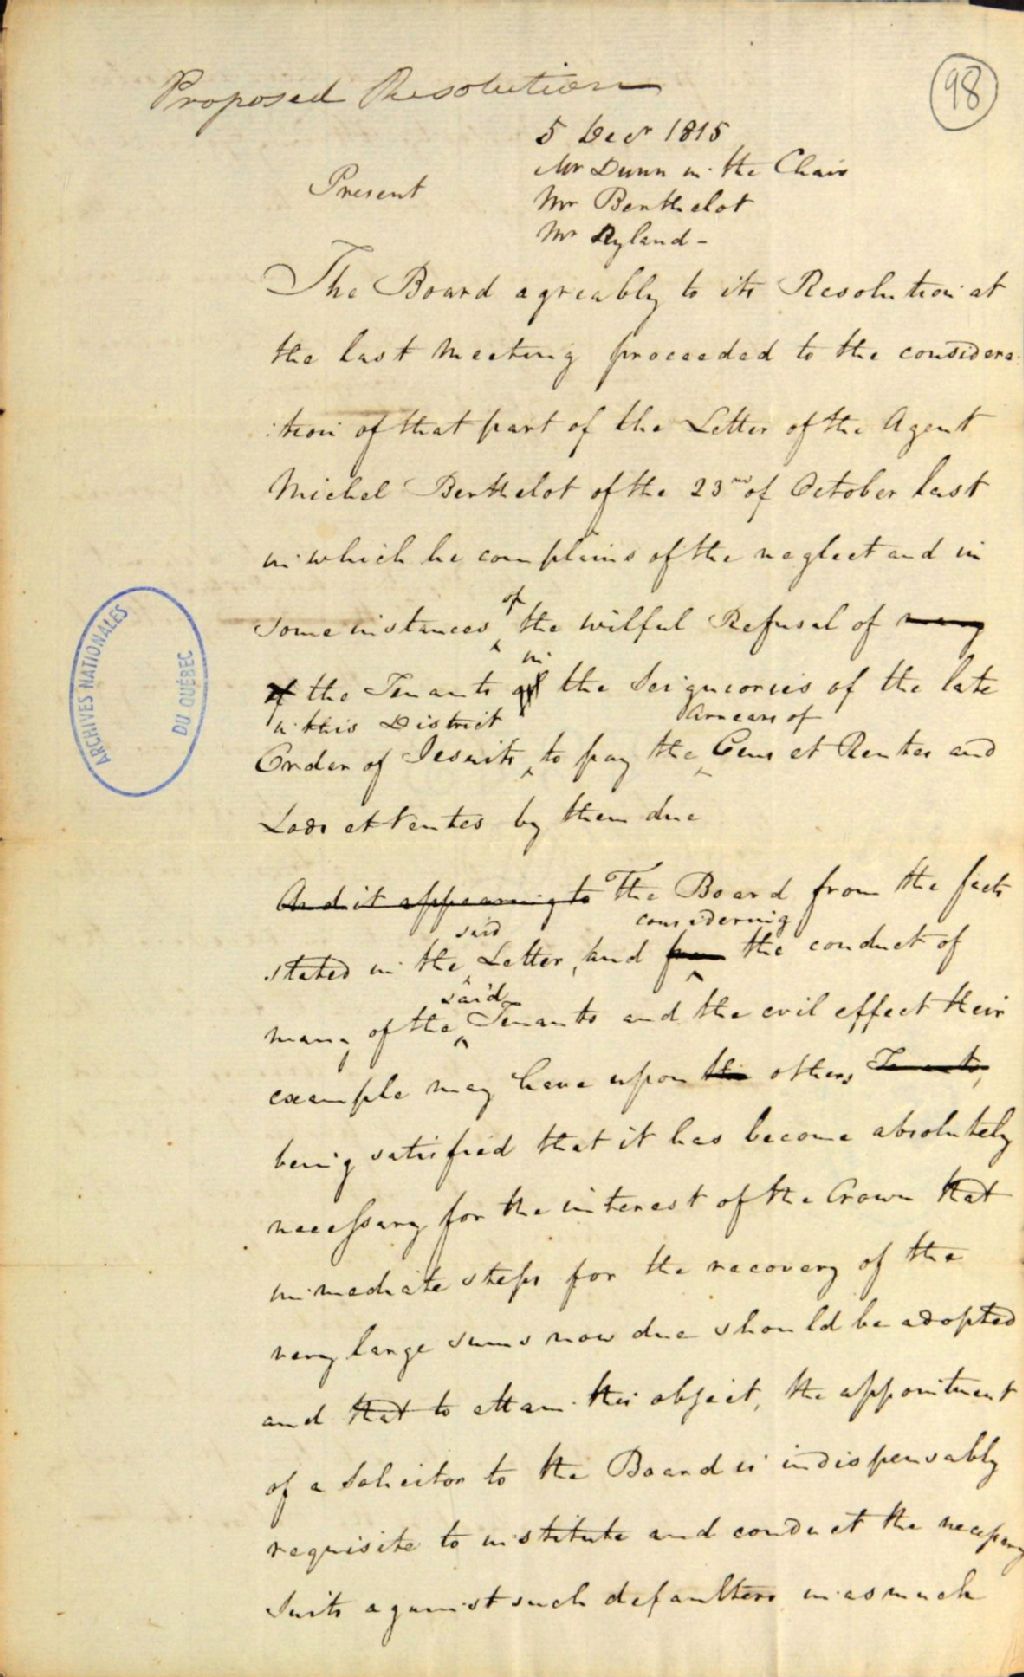 Proposed Resolution
98
5 Decr 1815
Mr Dunn in the Chair
Present
Mr Berthelot
Mr Ryland -
The Board agreably to its Resolution at
the last Meeting proceeded to the considera
:tion of that part of the Letter of the Agent
Michel Berthelot of the 23rd of October last
in which he complains of the neglect and in
of
some instances the wilful Refusal of many
in
of the Tenants of the Seigneories of the late
in this District
Arrears of
Order of Jesuits, to pay the Cens et Rentes and
Lods et Ventes by them due
And it appearing to The Board from the facts
said
considering
stated in the Letter, and from the conduct of
said
many of the Tenants and the evil effect their
example may have upon the others Tenants,
being satisfied that it has become absolutely
necessary for the interest of the Crown that
immediate steps for the recovery of the
very large sums now due should be adopted
and that to attain this object, the appointment
of a Solicitor to the Board is indispensably
requisite to institute and conduct the necessary
Suits against such defaulters in as much
ARCHIVES NATIONALES
DU QUÉBEC